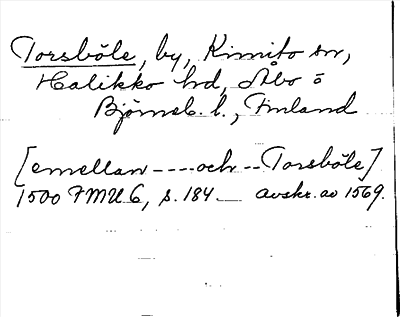 Torsböle, by, Kimito sn,
Halikko hd, Åbo o
Björneb. l., Finland
[emellan ---- och -- Torsböle]
1500 FMU 6, s. 184 — avskr. av 1569.